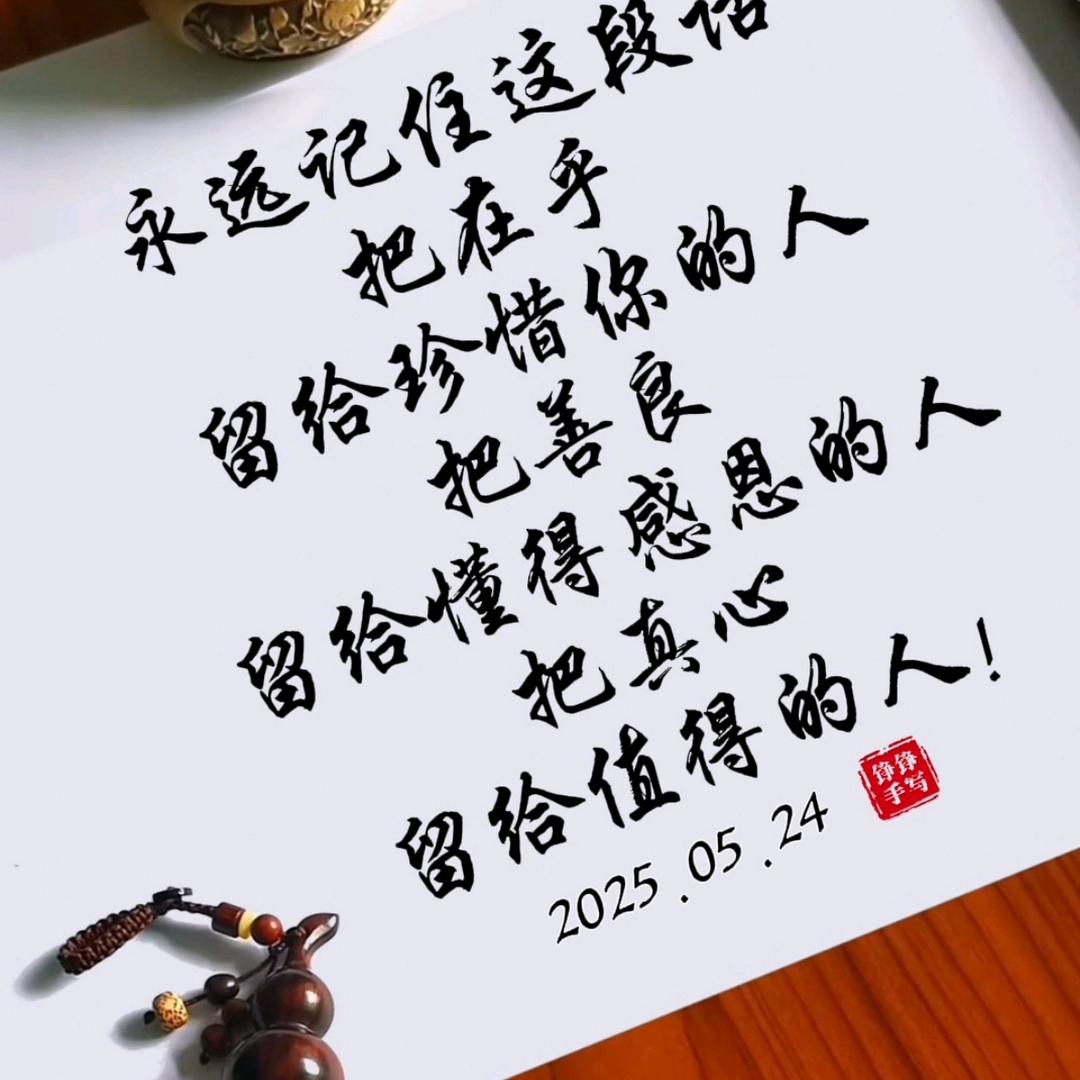 永远记住这段话
把在乎
留给珍惜你的人
把善良
留给懂得感恩的人
把真心
留给值得的人!
2025.05.24
铮铮
手写